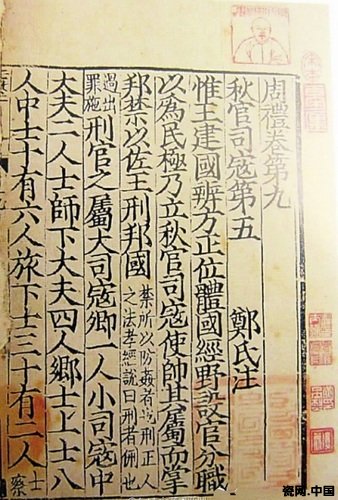 周禮卷第九
秋官司寇第五　鄭氏注
惟王建國辨方正位體國經野設官分職
以為民極乃立秋官司寇使帥其屬而掌
邦禁以佐王刑邦國禁所以防姦者也刑正人之法孝經說曰刑者侀也
過出罪施刑官之屬大司寇卿一人小司寇中
大夫二人士師下大夫四人鄉士上士八
人中士十有六人旅下士三十有二人士察
瓷网.中国